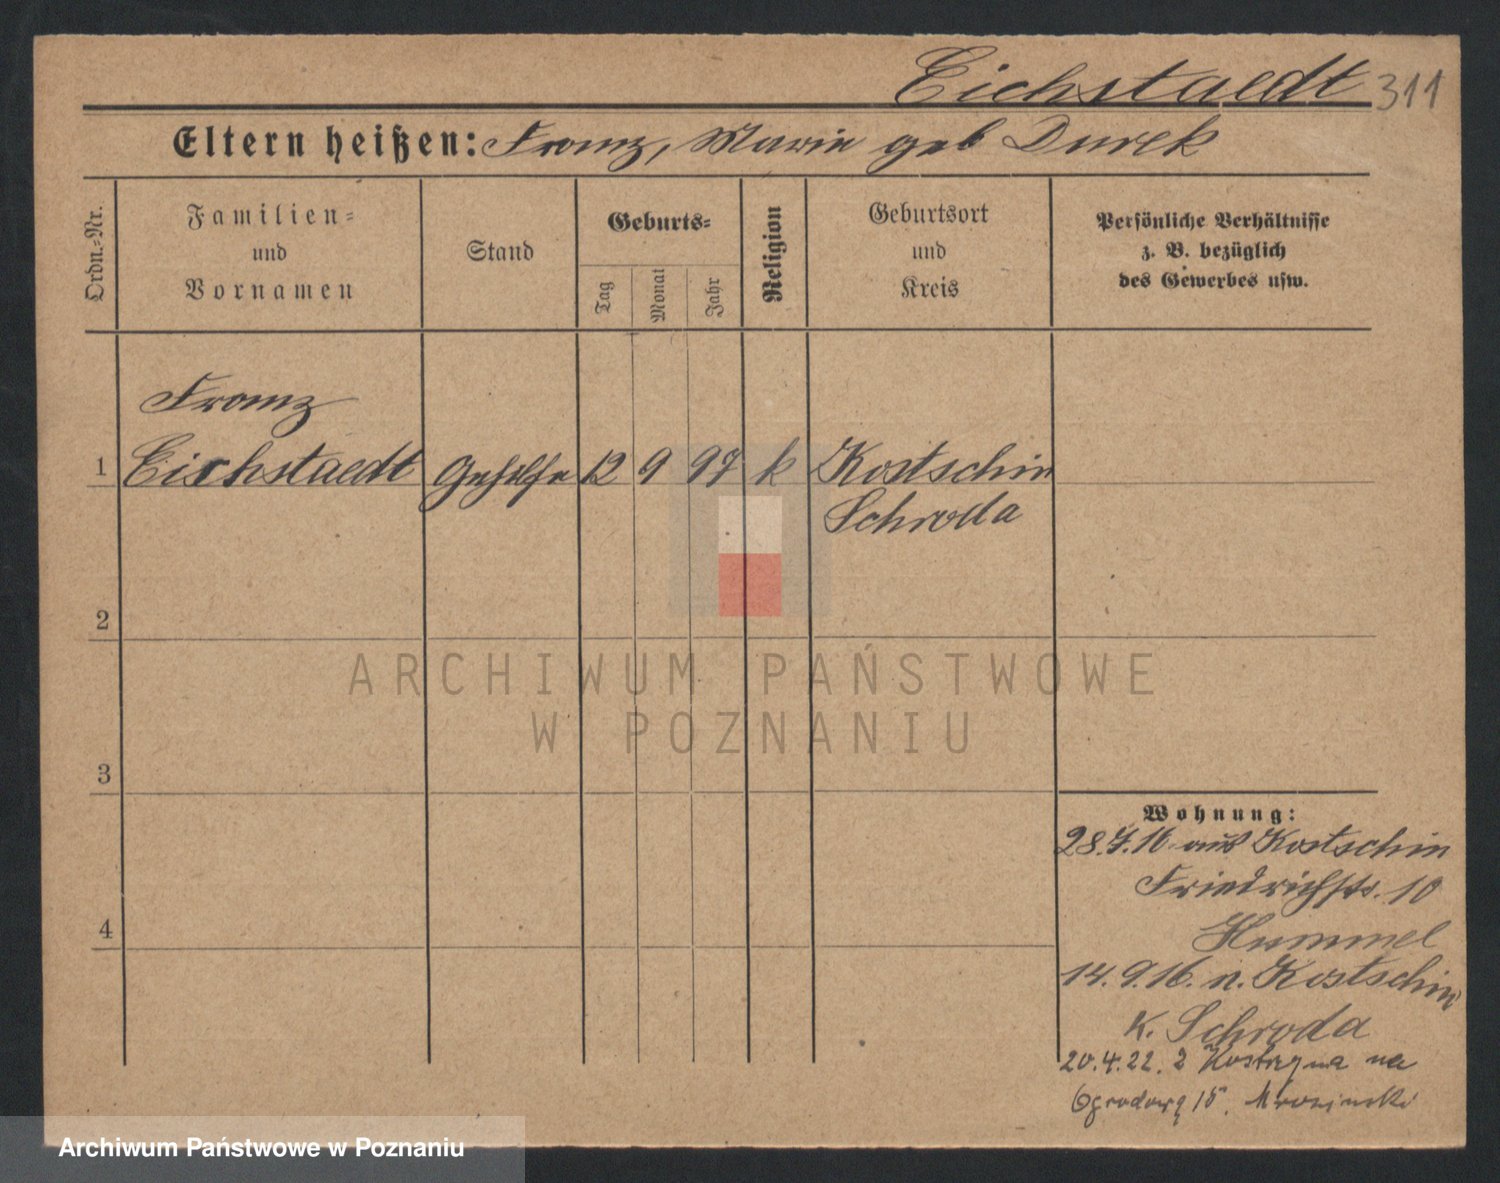 Eichstaedt 311
Eltern heißen: Franz, Marie geb Durek
Ordn.=Nr.
Familien=
und
Vornamen
Stand
Geburts=
Tag
Monat
Jahr
Religion
Geburtsort
und
Kreis
Persönliche Verhältnisse
z. B. bezüglich
des Gewerbes usw.
Franz
1 Eichstaedt Gehilfe 12 9 97 k Kostschin
Schroda
2
3
4
Wohnung:
28.7.16 aus Kostschin
Friedrichstr. 10
Hummel
14.9.16. n. Kostschin
K. Schroda
20.4.22. z Kostrzyna na
Ogrodową 15. Mrozinski
ARCHIWUM PAŃSTWOWE
W POZNANIU
Archiwum Państwowe w Poznaniu